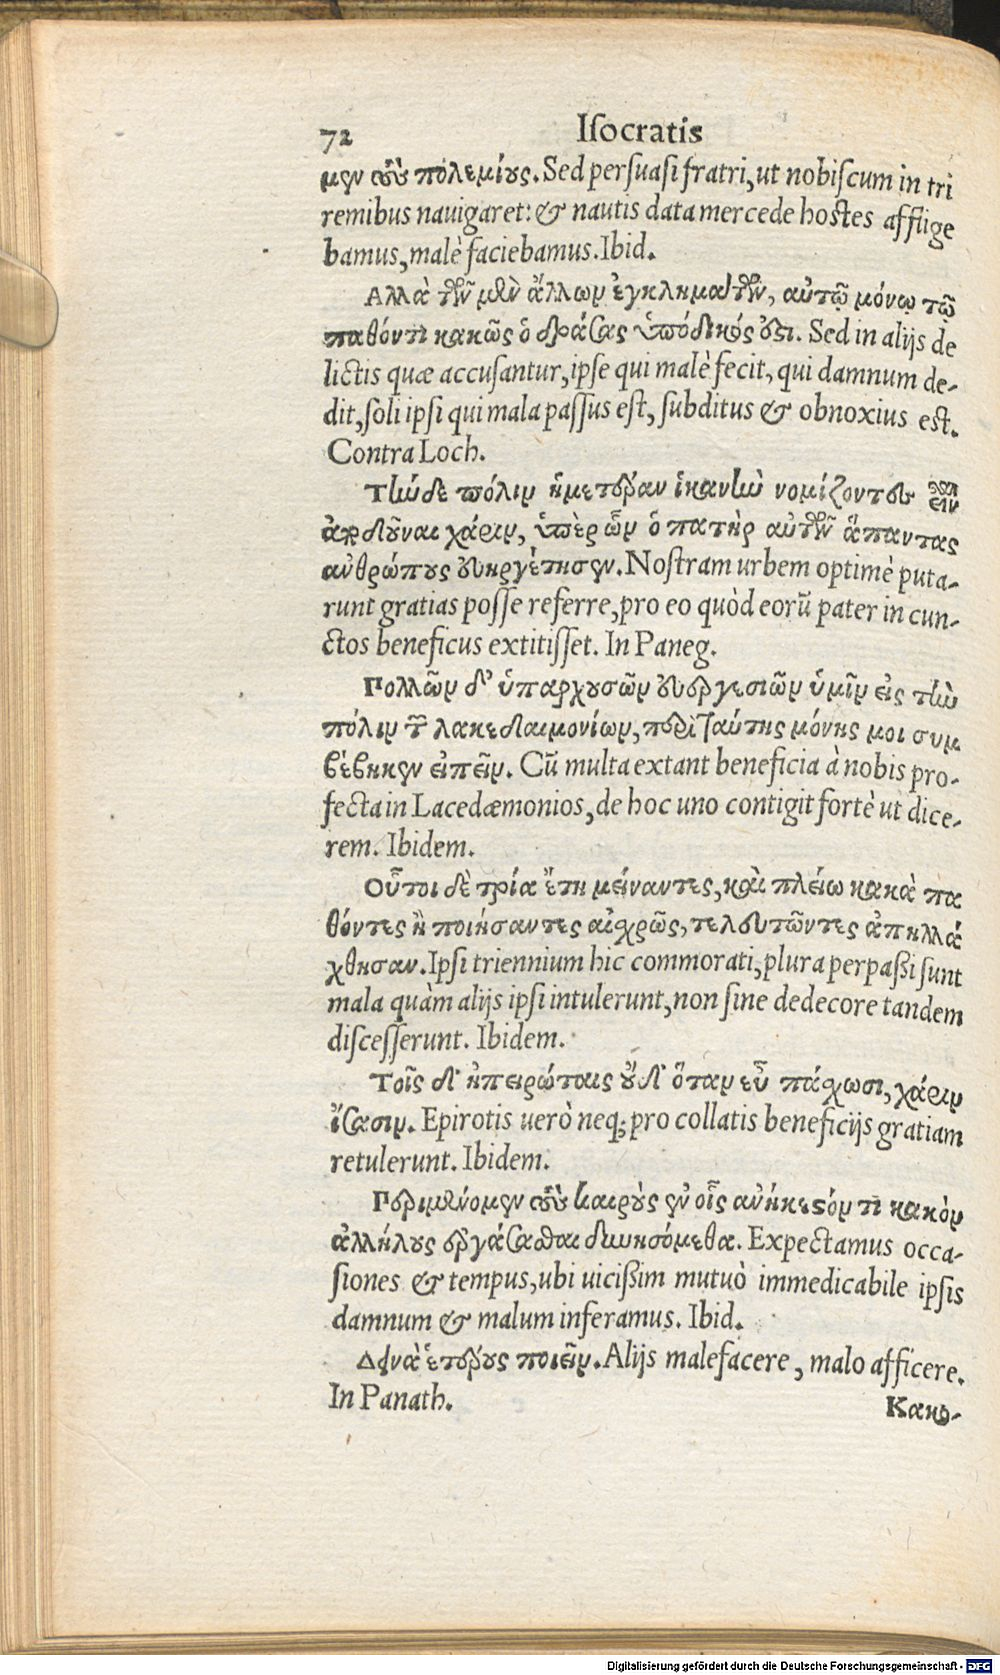 72 Iſocratis
μεν τοὺς πολεμίους. Sed perſuaſi fratri, ut nobiſcum in tri
remibus nauigaret: & nautis data mercede hoſtes afflige
bamus, malè faciebamus. Ibid.
Αλλὰ τῶν μὲν ἄλλων ἐγκλημάτων, αὐτῷ μόνῳ τῷ
παθόντι κακῶς ὁ δράσας ὑπόδικός ἐστι. Sed in alijs de
lictis quæ accuſantur, ipſe qui malè fecit, qui damnum de-
dit, ſoli ipſi qui mala paſſus eſt, ſubditus & obnoxius eſt.
Contra Loch.
Τὴν δὲ πόλιν ἡμετέραν ἱκανὴν νομίζοντες
ἀποδοῦναι χάριν, ὑπὲρ ὧν ὁ πατὴρ αὐτῶν ἅπαντας
ανθρώπους ευηργέτησεν. Noſtram urbem optimè puta-
runt gratias poſſe referre, pro eo quòd eorũ pater in cun-
ctos beneficus extitiſſet. In Paneg.
Πολλῶν δ' ὑπαρχουσῶν ευεργεσιῶν ὑμῖν εἰς τὴν
πόλιν τῶν λακεδαιμονίων, περὶ ταύτης μόνης μοι συμ
βέβηκεν εἰπεῖν. Cũ multa extant beneficia à nobis pro-
fecta in Lacedæmonios, de hoc uno contigit fortè ut dice-
rem. Ibidem.
Οὗτοι δὲ τρία ἔτη μείναντες, καὶ πλείω κακὰ πα
θόντες ἢ ποιήσαντες αἰσχρῶς, τελευτῶντες ἀπηλλά
χθησαν. Ipſi triennium hic commorati, plura perpaßi ſunt
mala quàm alijs ipſi intulerunt, non ſine dedecore tandem
diſceſſerunt. Ibidem.
Τοῖς δ' ἠπειρώταις οὐδ' ὅταν εὖ πάσχωσι, χάριν
ἴσασιν. Epirotis uerò neq; pro collatis beneficijs gratiam
retulerunt. Ibidem.
Περιμένομεν τοὺς καιροὺς ἐν οἷς ανήκεστόν τι κακὸν
ἀλλήλους ἐργάσασθαι δυνησόμεθα. Expectamus occa-
ſiones & tempus, ubi uicißim mutuò immedicabile ipſis
damnum & malum inferamus. Ibid.
Δεινὰ ἑτέρους ποιεῖν. Alijs malefacere, malo afficere.
In Panath.
Κακο-
Digitalisierung gefördert durch die Deutsche Forschungsgemeinschaft - DFG